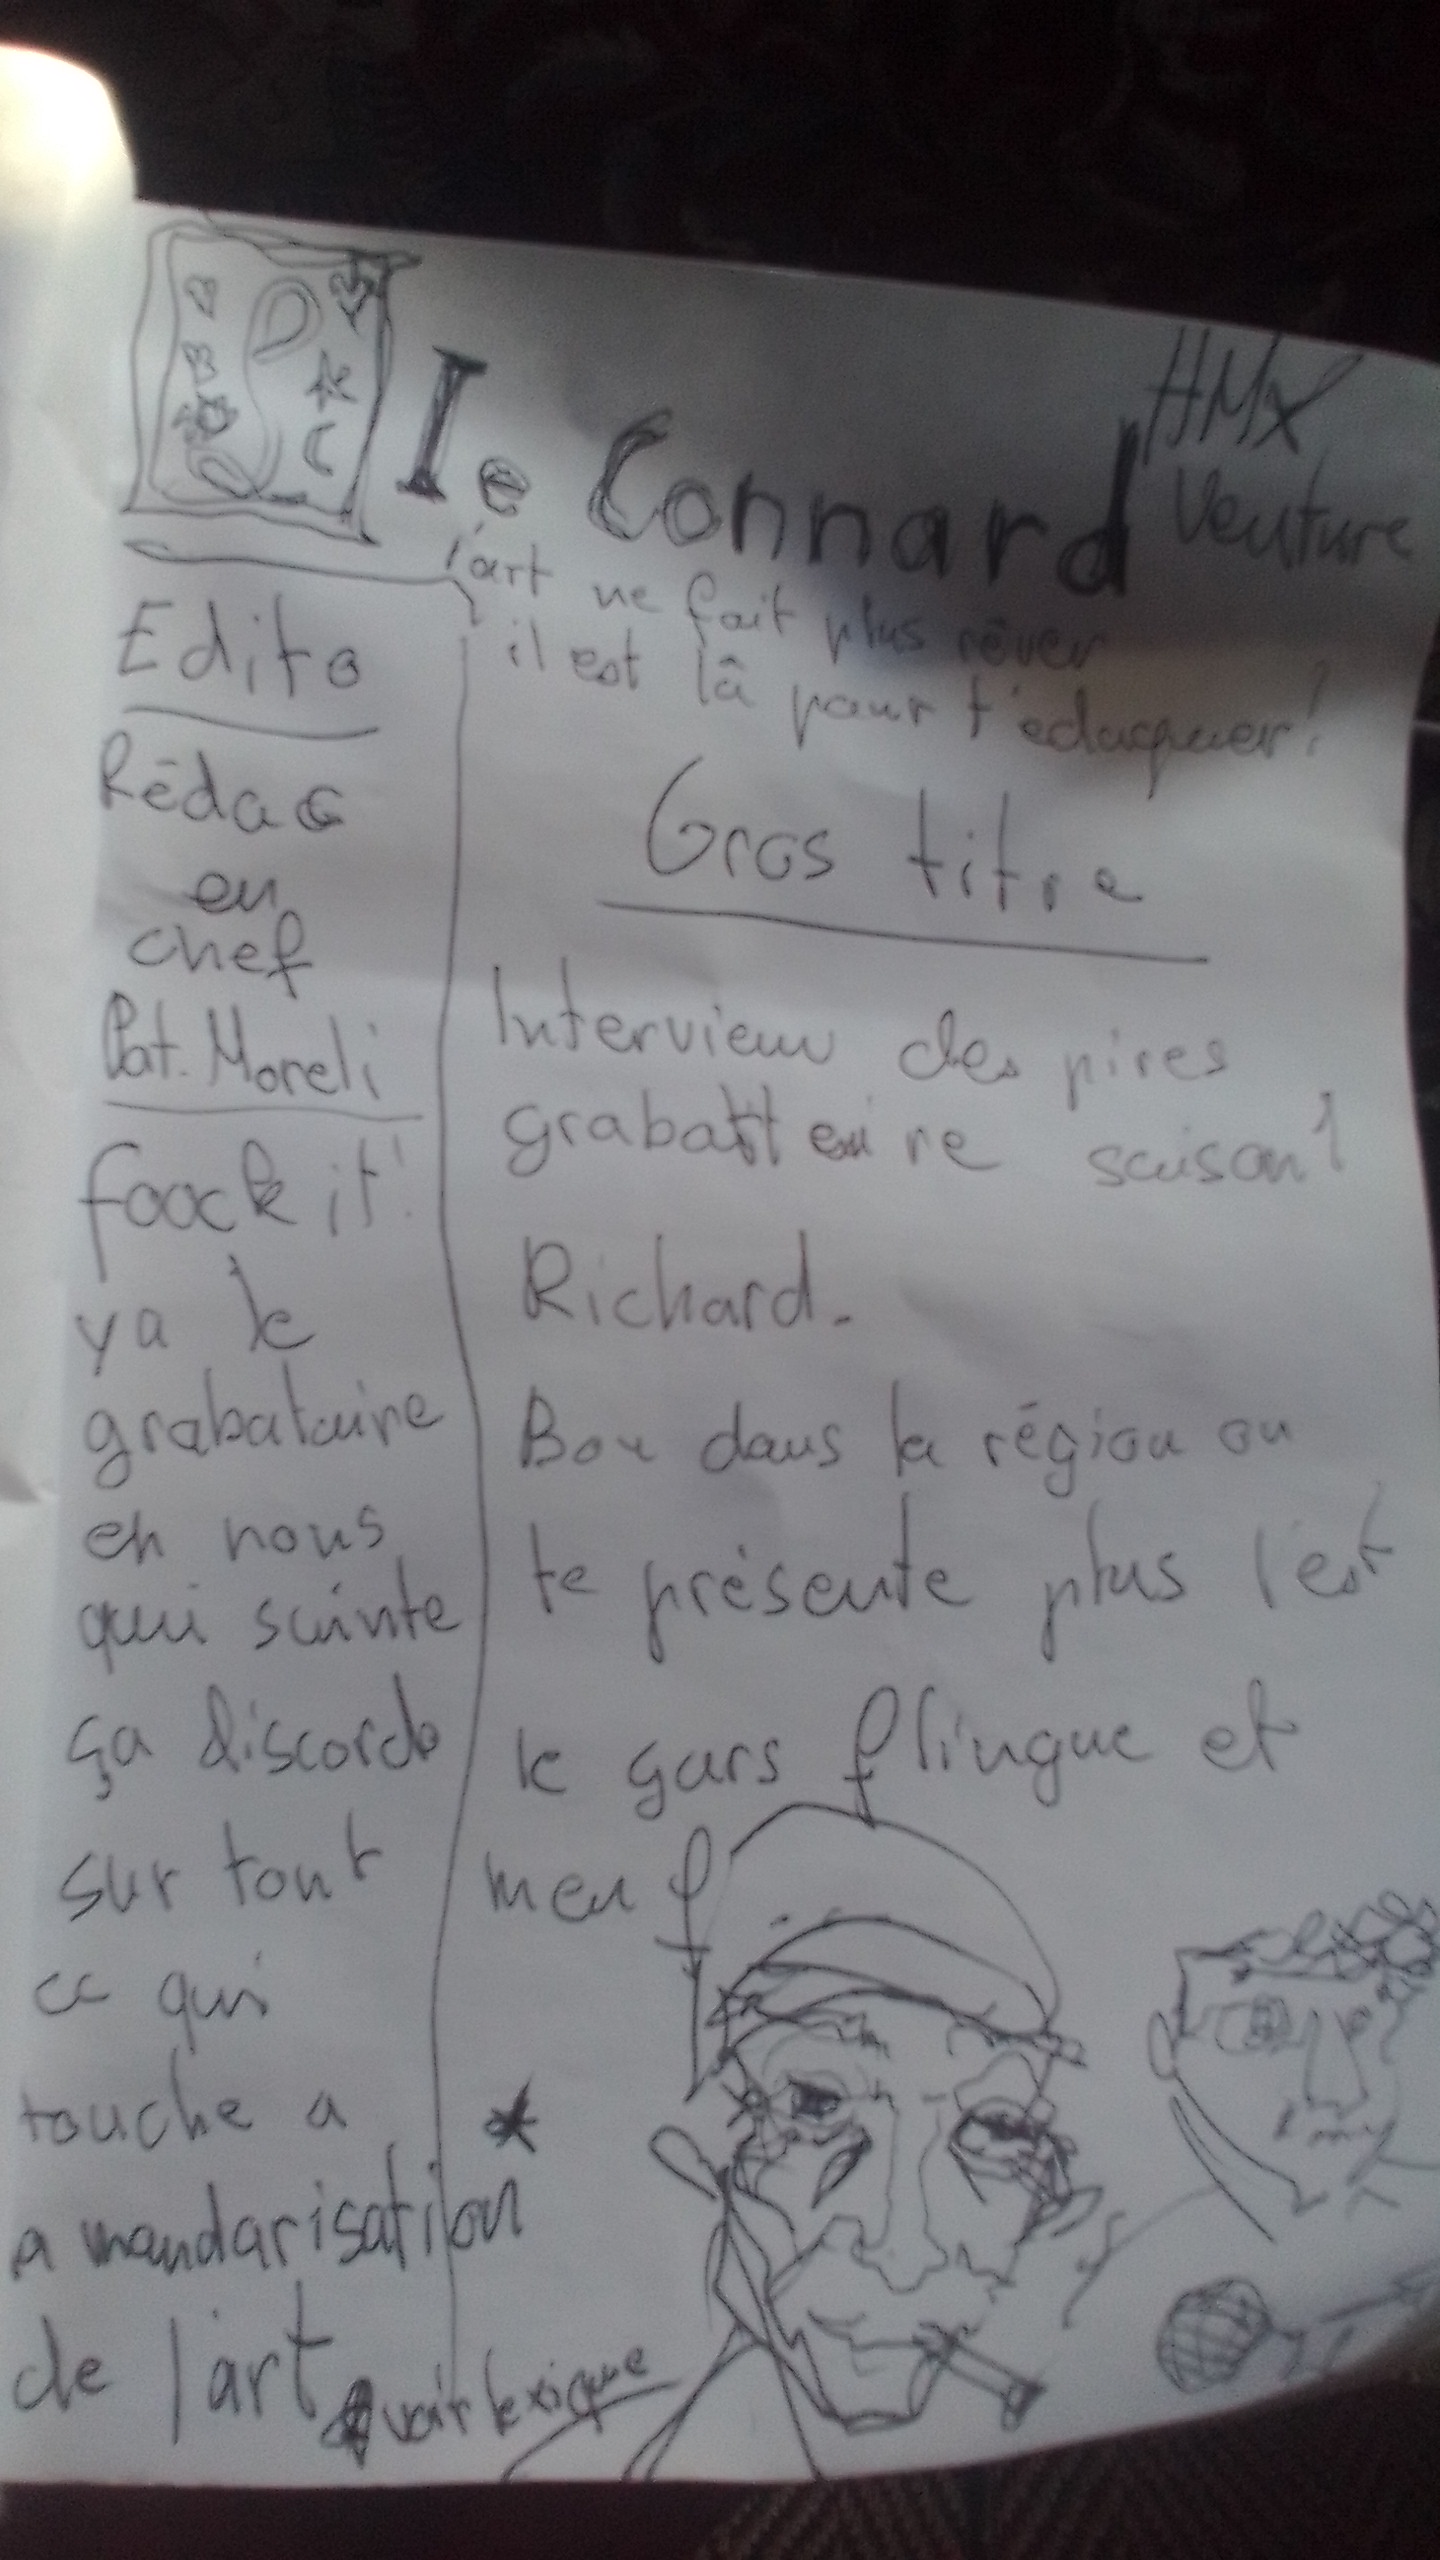 Le Connard
HMX
Venture
l'art ne fait plus rêver
il est là pour t'éduquer!
Edito
Rédac
en
chef
Pat. Moreli
foock it!
ya le
grabataire
en nous
qui suinte
ça discorde
sur tout
ce qui
touche a
a mandarisation *
de l'art
* voir lexique
Gros titre
Interview des pires
grabattaire saison 1
Richard.
Bon dans la région on
te présente plus l'est
le gars flingue et
meuf